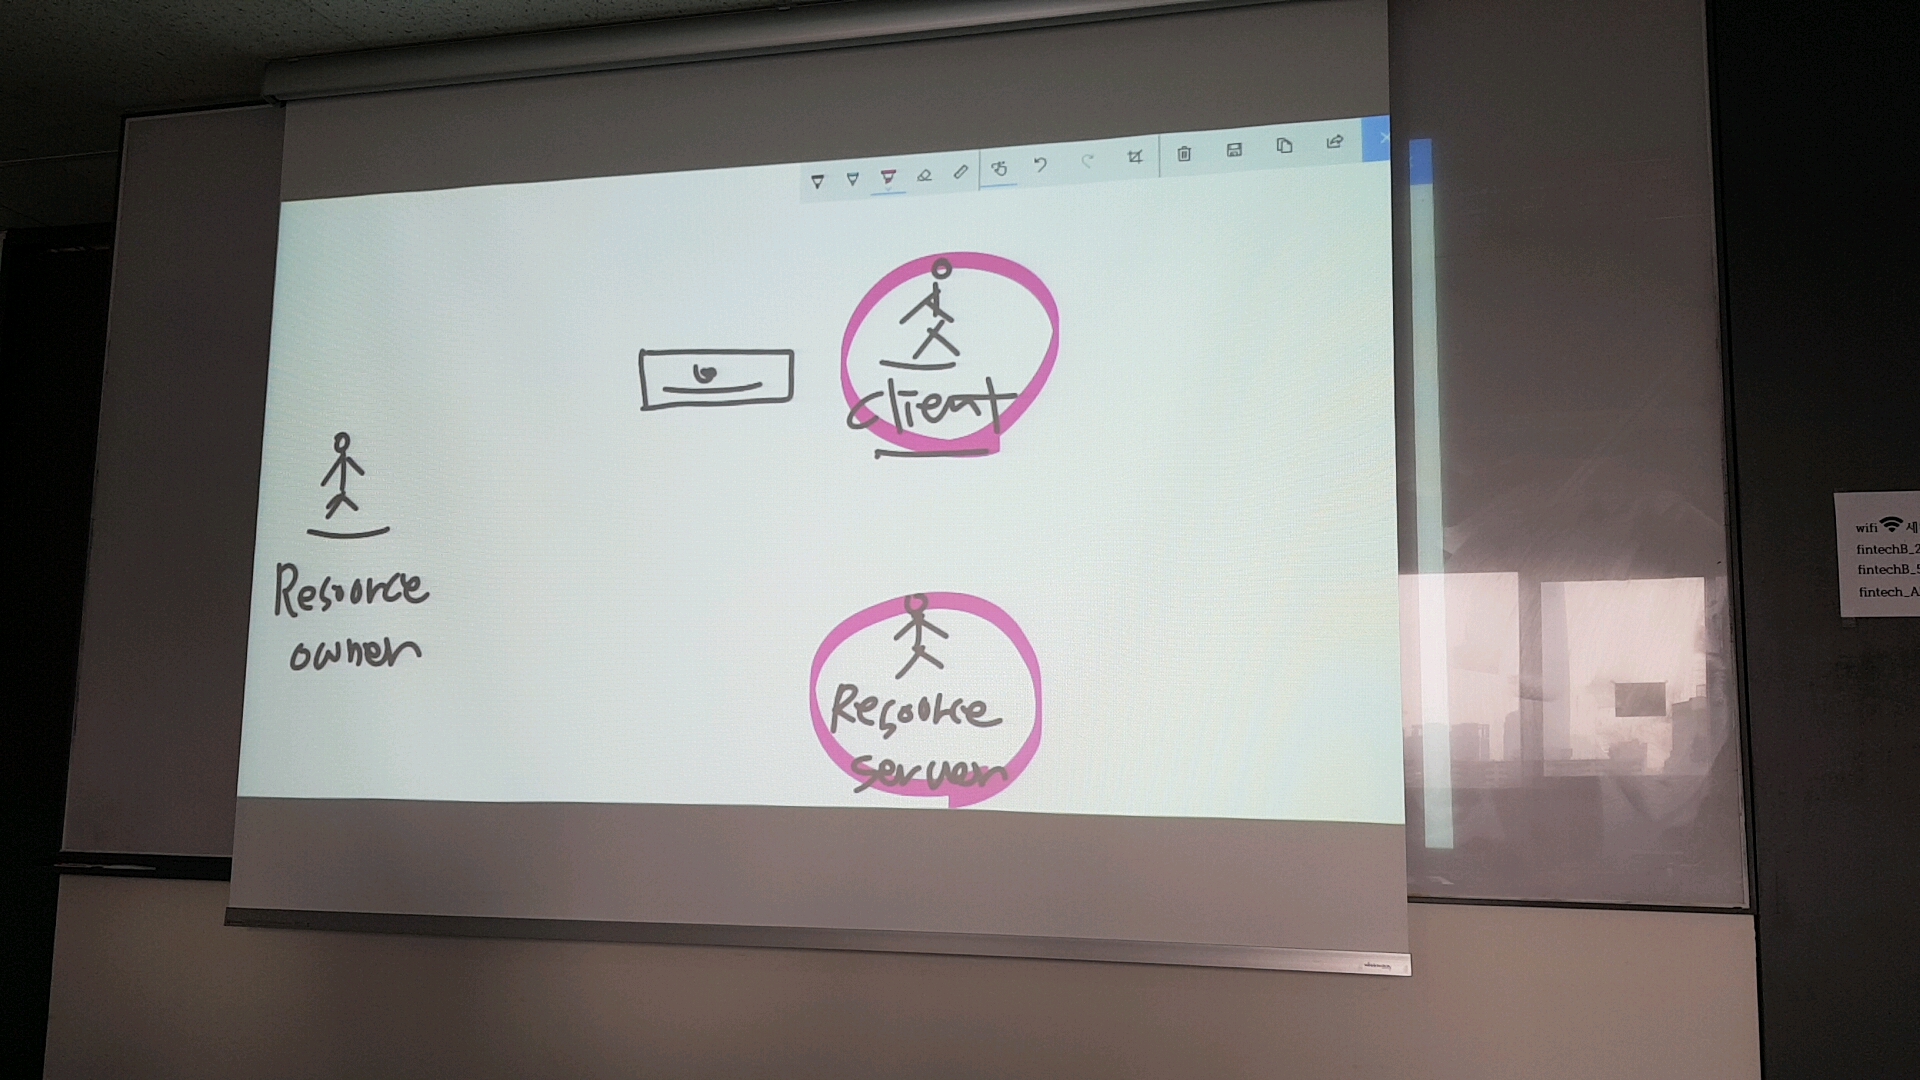 client
Resource
owner
Resource
server
wifi 세
fintechB_2
fintechB_5
fintech_A